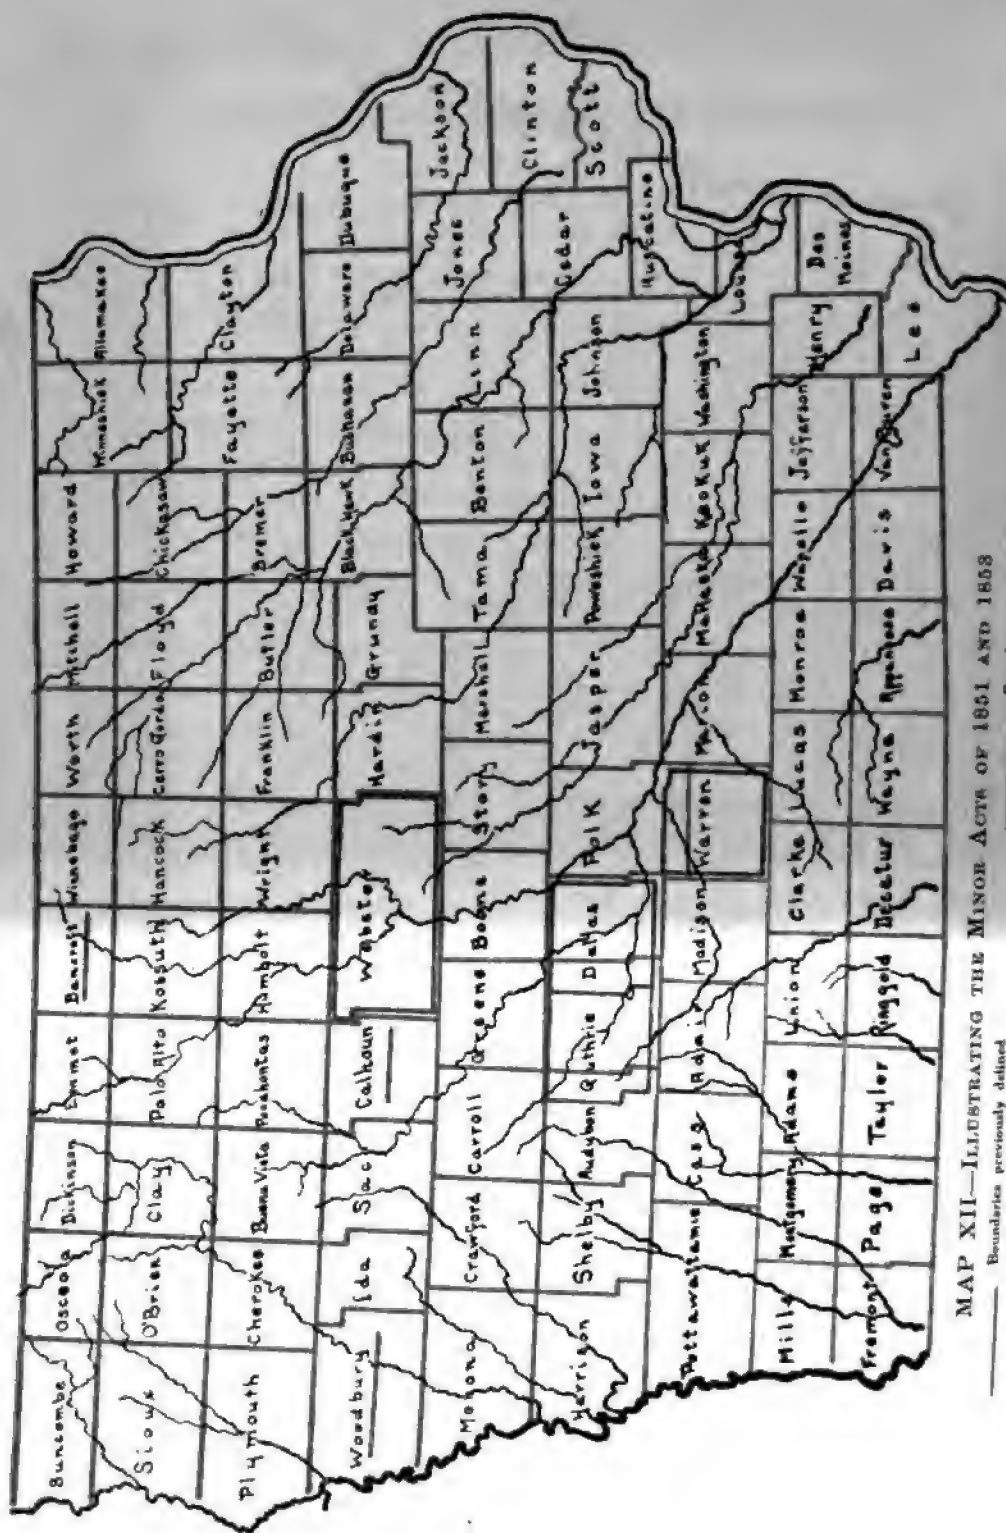 Buncombe
Osceola
Dickinson
Emmet
Bancroft
Winnebago
Worth
Mitchell
Howard
Winneshiek
Allamakee
Sioux
O'Brien
Clay
Palo Alto
Kossuth
Hancock
Cerro Gordo
Floyd
Chickasaw
Fayette
Clayton
Plymouth
Cherokee
Buena Vista
Pocahontas
Humbolt
Wright
Franklin
Butler
Bremer
Woodbury
Ida
Sac
Calhoun
Webster
Hardin
Grundy
Black Hawk
Buchanan
Delaware
Dubuque
Monona
Crawford
Carroll
Greene
Boone
Story
Marshall
Tama
Benton
Linn
Jones
Jackson
Harrison
Shelby
Audubon
Guthrie
Dallas
Polk
Jasper
Poweshiek
Iowa
Johnson
Cedar
Clinton
Scott
Muscatine
Pottawattamie
Cass
Adair
Madison
Warren
Marion
Mahaska
Keokuk
Washington
Louisa
Mills
Montgomery
Adams
Union
Clarke
Lucas
Monroe
Wapello
Jefferson
Henry
Des
Moines
Fremont
Page
Taylor
Ringgold
Decatur
Wayne
Appanoose
Davis
Van Buren
Lee
MAP XII—ILLUSTRATING THE MINOR ACTS OF 1851 AND 1853
Boundaries previously defined